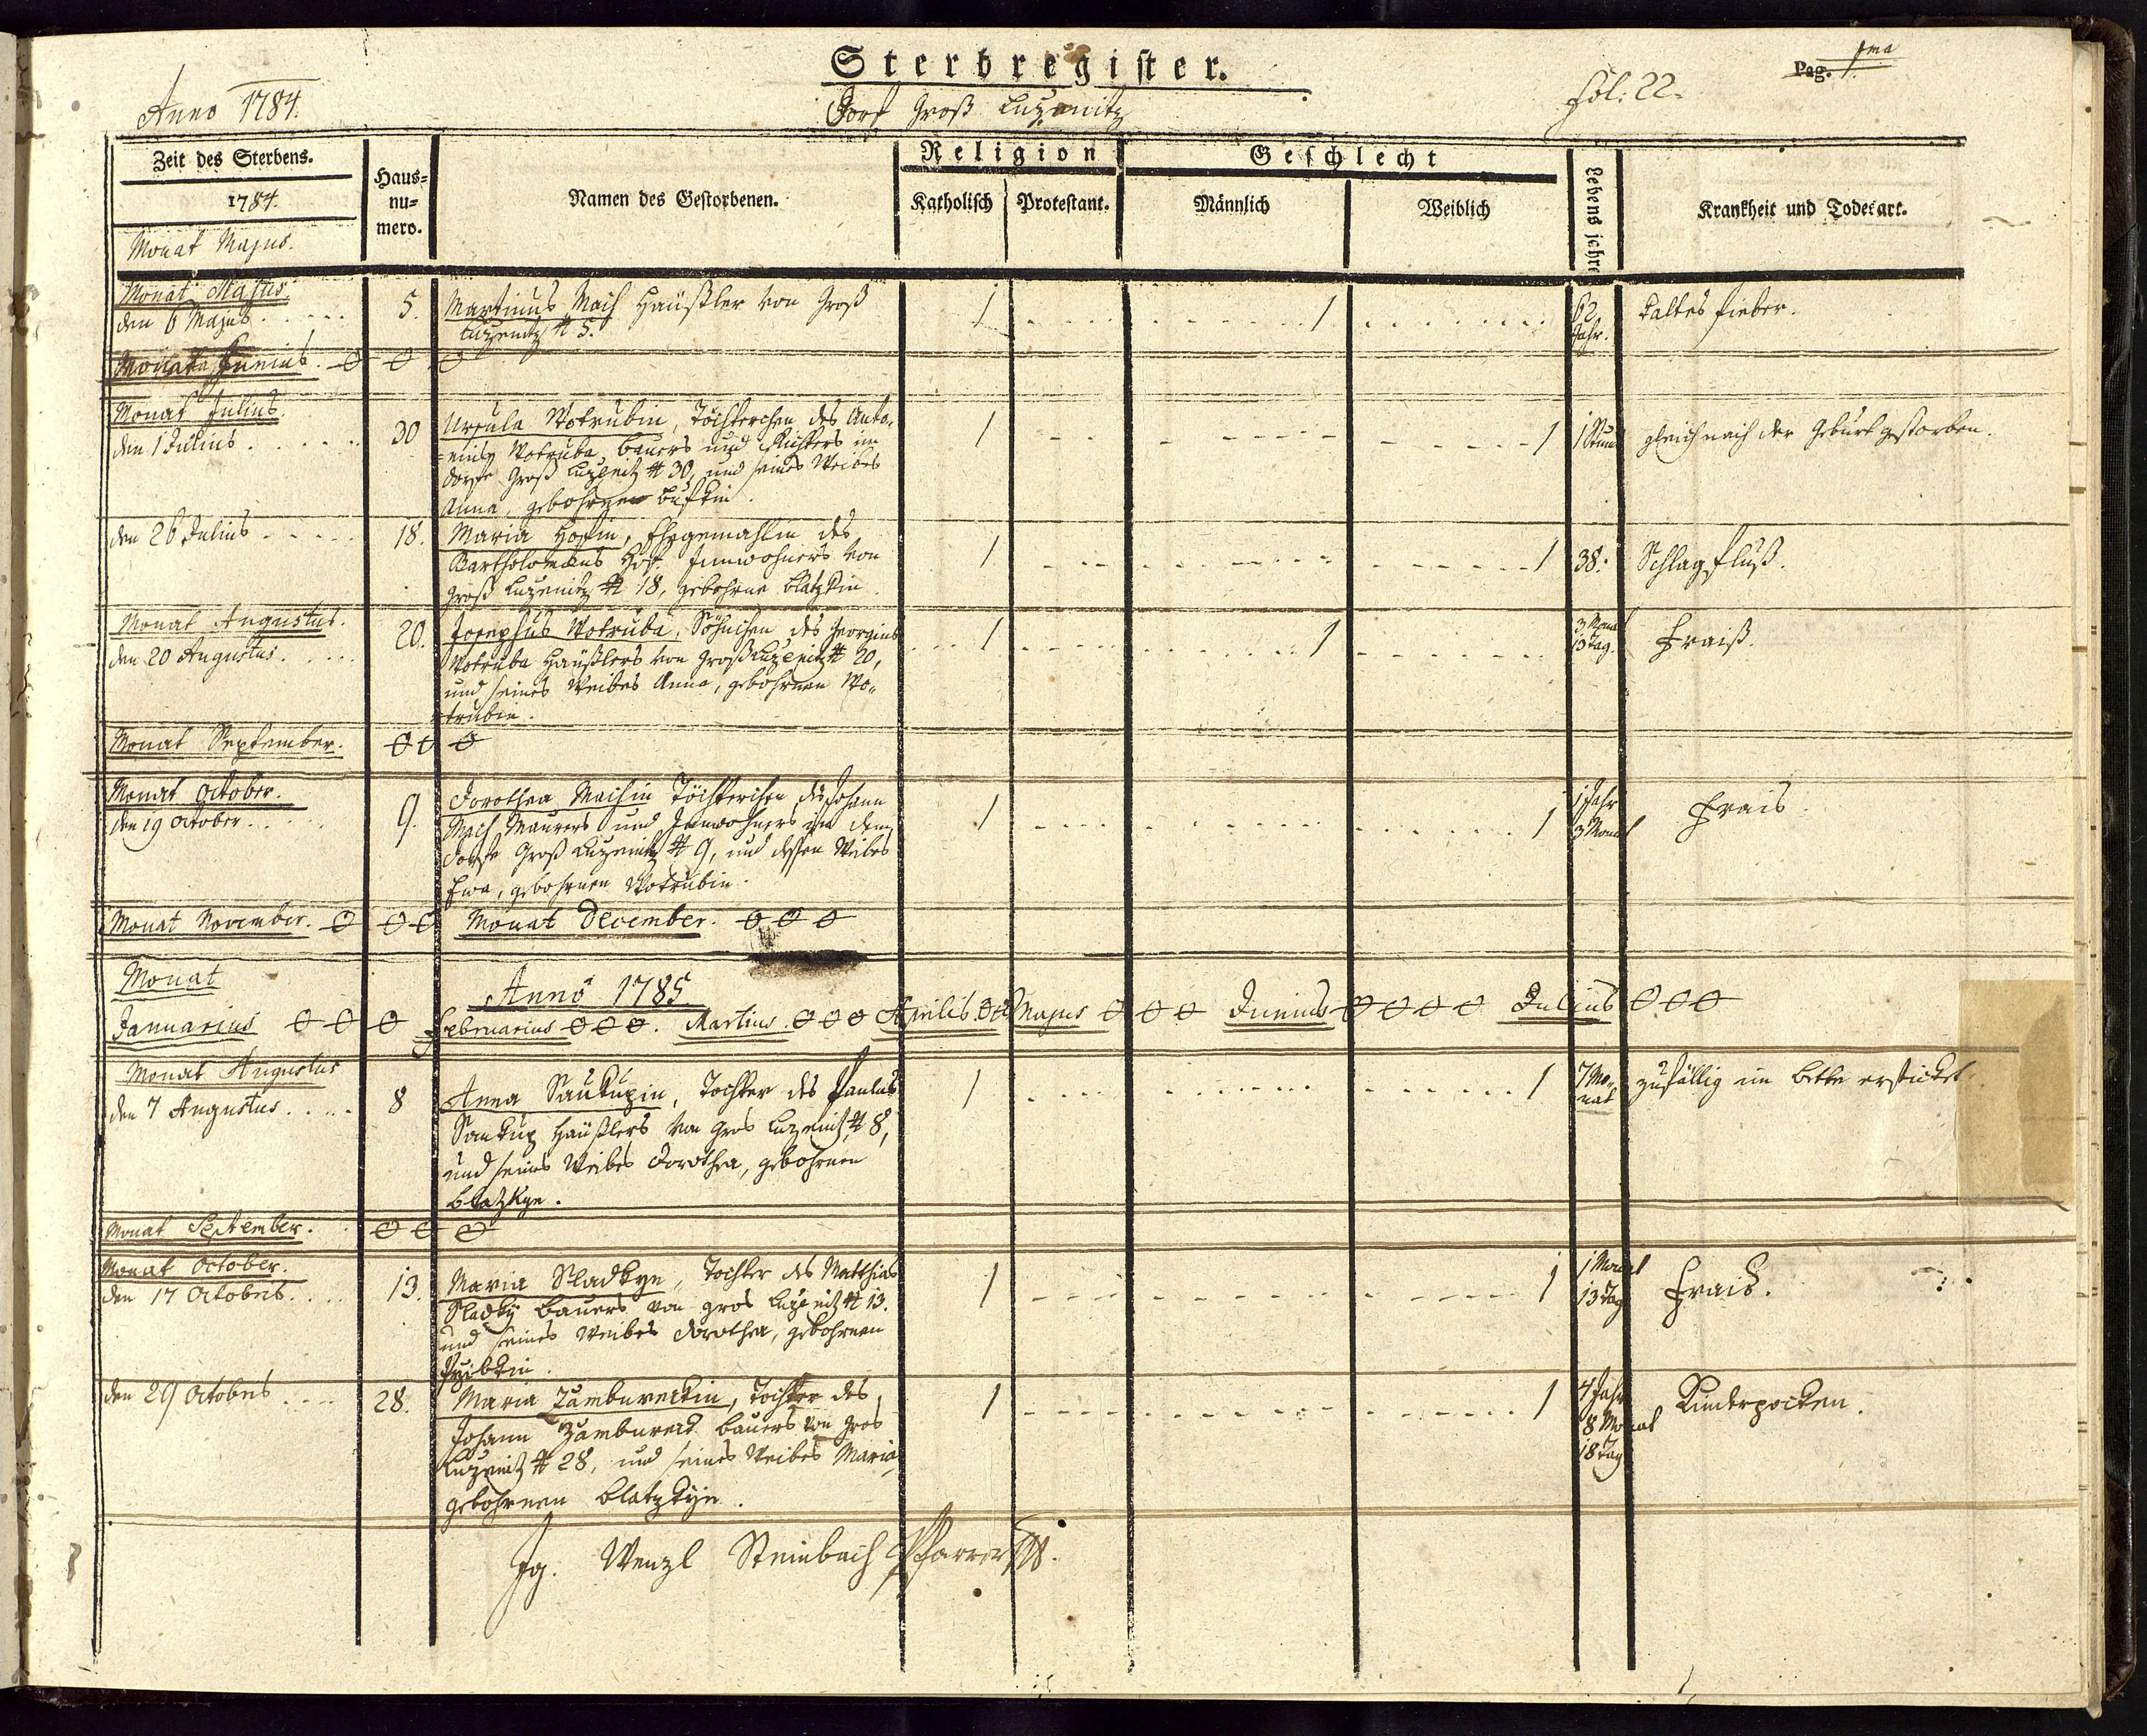 Sterbregister.
Pag. 1ma
Anno 1784.
Dorf Groß Luzenitz
Fol: 22.
Zeit des Sterbens.
1784.
Monat Majus.
Haus=
nu=
mero.
Namen des Gestorbenen.
Religion
Katholisch
Protestant.
Geschlecht
Männlich
Weiblich
Lebensjahre
Krankheit und Todesart.
Monat Majus.
den 6 Majus . . . . .
5.
Martinus Mach Häußler von Groß
Luzenitz # 5.
1
1
62
Jahr.
kaltes fieber.
Monat Junius. O O O
Monat Julius.
den 1 Julius . . . . . .
30
Ursula Wotrubin, Töchterchen des Anto=
=nius Wotruba, Bauers und Richters im
Dorfe Groß Luzenitz # 30, und seines Weibes
Anna, gebohrnen
1
1
1 Stund
gleich nach der Geburt gestorben.
den 26 Julius . . . . .
18.
Maria Hossin, Ehegemahlin des
Bartholomäus Hoss Innwohners von
Groß Luzenitz # 18, gebohrne Blatzkin.
1
1
38.
Schlagfluß.
Monat Augustus.
den 20 Augustus . . . . .
20.
Josephus Wotruba, Söhnchen des Georgius
Wotruba Häußlers von Groß Luzenitz # 20,
und seines Weibes Anna, gebohrnen Wo=
trubin.
1
1
3 Monat
13 Tag.
Fraiß.
Monat September. O O O
Monat October.
den 19 October . . . . .
9.
Dorothea Machin Töchterchen des Johann
Mach Maurers und Innwohners in dem
Dorfe Groß Luzenitz # 9, und dessen Weibes
Ewa, gebohrnen Wotrubin.
1
1
1 Jahr
3 Monat
Frais.
Monat November. O O O Monat December. O O O
Monat
Anno 1785
Januarius O O O Februarius O O O. Martius. O O O Aprilis. O O Majus O O O Junius O O O O Julius O O O
Monat Augustus
den 7 Augustus . . . . .
8
Anna Saukupin, Tochter des Paulus
Saukup Häußlers von Gros Luzenitz # 8,
und seines Weibes Dorothea, gebohrnen
Blatzkyn.
1
1
7 Mo=
nat
zufällig im Bette ersticket.
Monat September. O O O
Monat October.
den 17 Octobris . . . .
13.
Maria Sladkyn, Tochter des Matthias
Sladky Bauers von Gros Luzenitz # 13.
und seines Weibes Dorothea, gebohrnen
1
1
1 Monat
13 Tag
Frais.
den 29 Octobris . . . .
28.
Maria Zambureckin, Tochter des
Johann Zambureck Bauers von Gros
Luzenitz # 28, und seines Weibes Maria
gebohrnen Blatzkyn.
1
1
4 Jahr
8 Monat
18 Tag
Kinderpocken.
Jg. Wenzl Steinbach Pfarrer